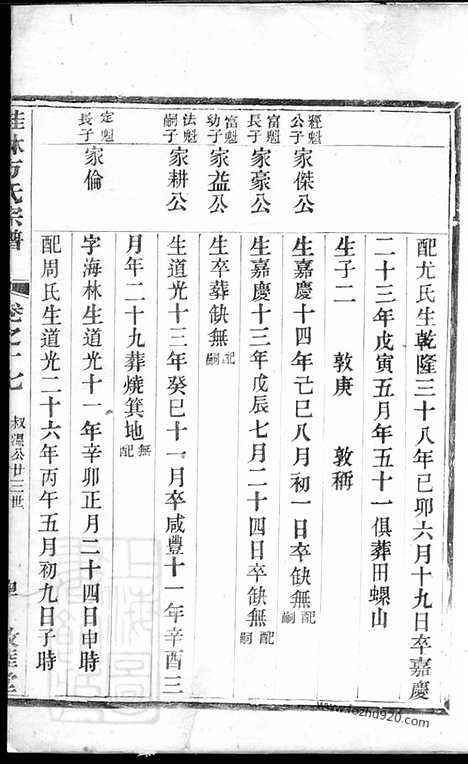 配尤氏生乾隆三十八年己卯六月十九日卒嘉慶
二十三年戊寅五月年五十一俱葬田螺山
生子二　敦庚　敦稱
經魁公子　家傑公　生嘉慶十四年己巳八月初一日卒缺無配嗣
富魁長子　家豪公　生嘉慶十三年戊辰七月二十四日卒缺無配嗣
富魁幼子　家益公　生卒葬缺無配嗣
法魁嗣子　家耕公　生道光十三年癸巳十一月卒咸豐十一年辛酉三
月年二十九葬燒箕地無配
定魁長子　家倫　字海林生道光十一年辛卯正月二十四日申時
配周氏生道光二十六年丙午五月初九日子時
桂林方氏宗譜　卷之十七　叔淵公廿三世　敦睦堂
www.fozhu920.com